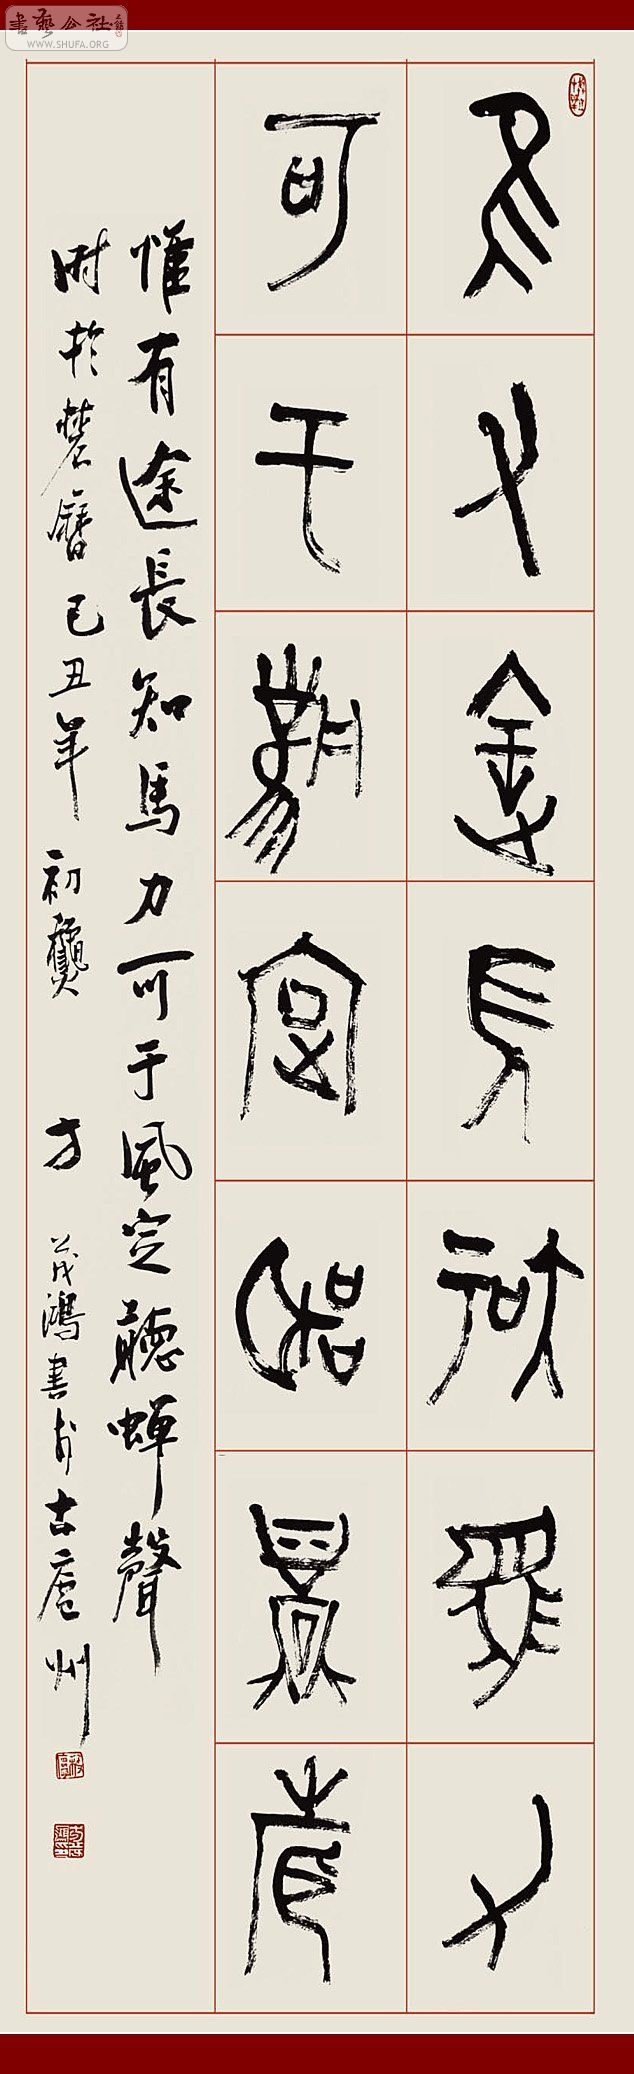 書藝公社
WWW.SHUFA.ORG
隹又途長知馬力
可于風定聽蟬聲
惟有途長知馬力可于風定聽蟬聲
時於楚曆己丑年初爨 方茂鴻書於古廬州